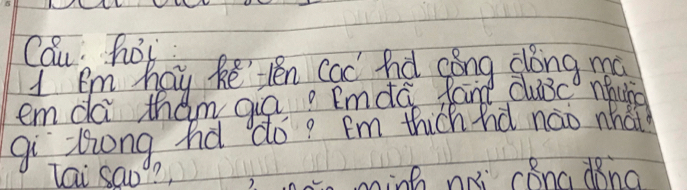 Câu hỏi:
1 Em hãy kể tên các hđ cộng đồng mà
em đã tham gia? Em đã làm được những
gì trong hđ đó? Em thích hđ nào nhất?
Tại sao?
mình nơi cộng đồng